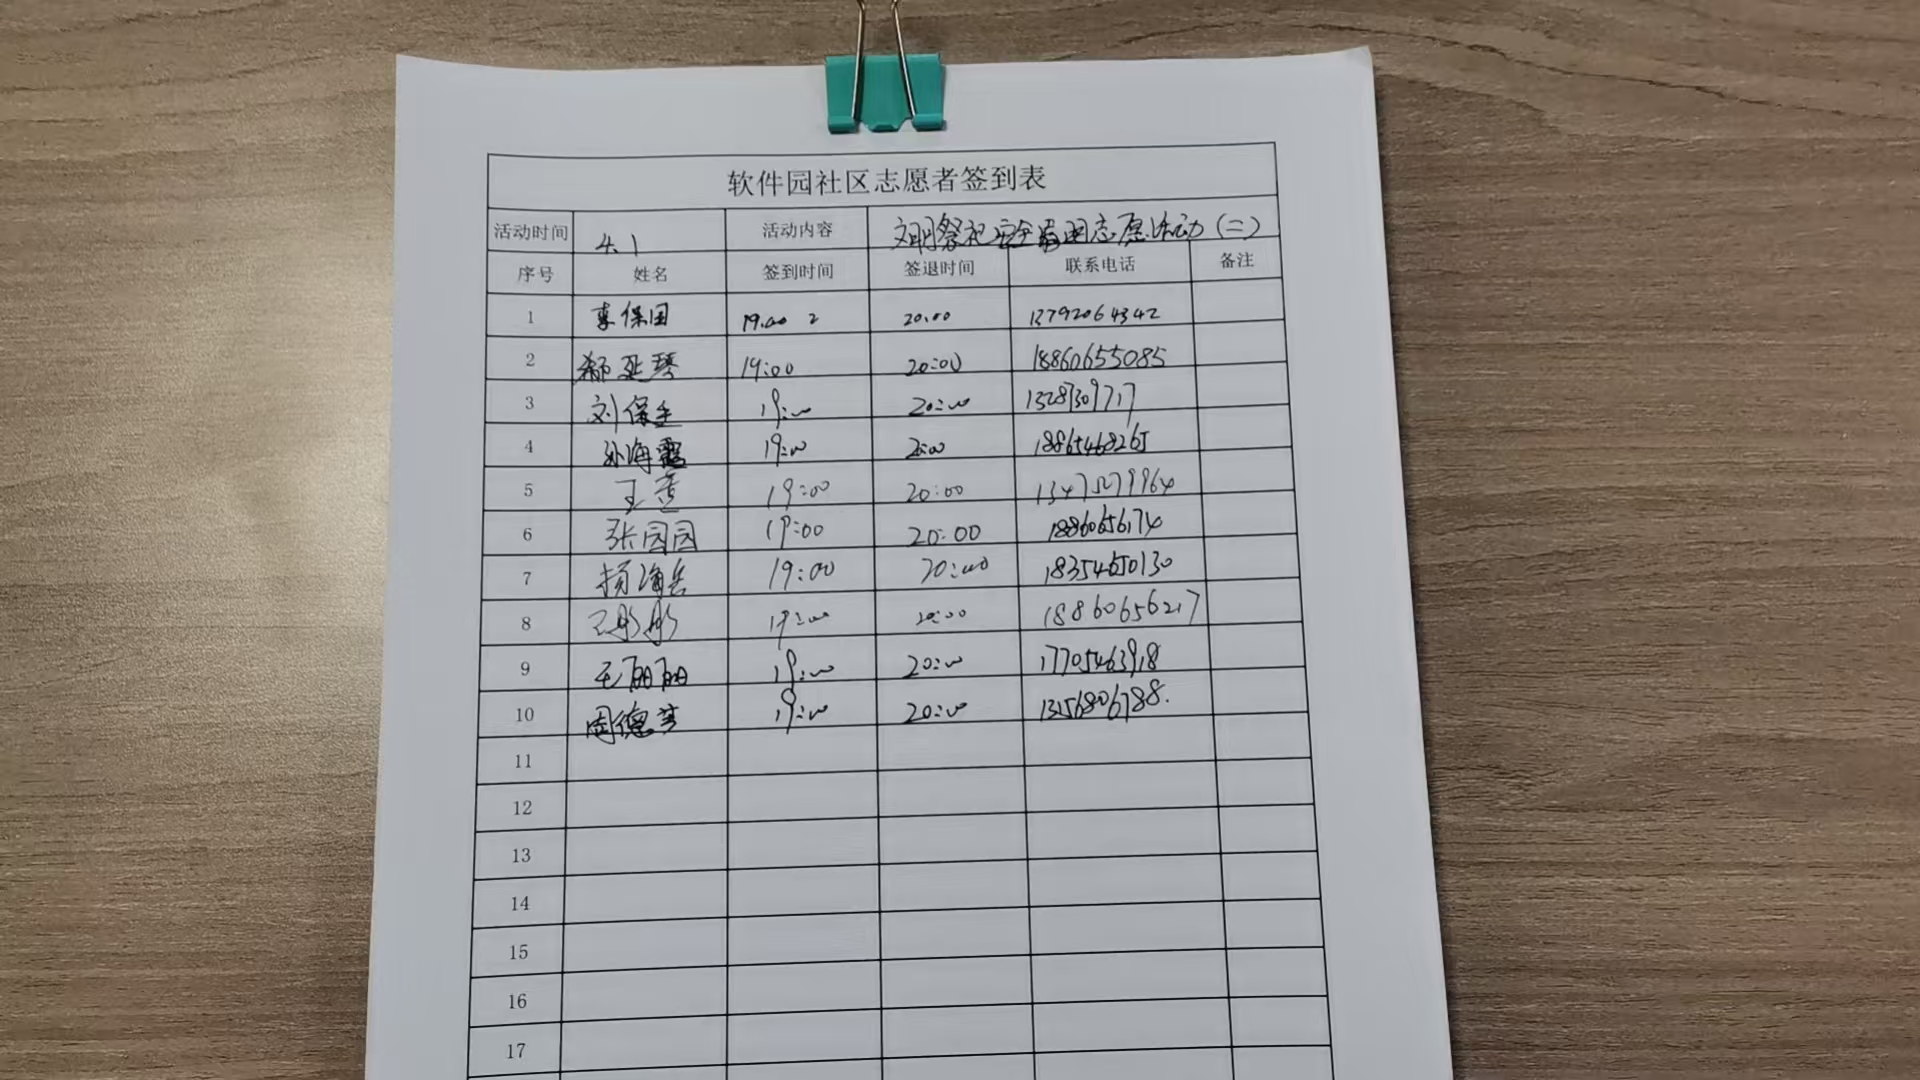 软件园社区志愿者签到表
活动时间 4.1 活动内容 文明祭祀安全清明志愿活动(二)
序号 姓名 签到时间 签退时间 联系电话 备注
1 李保国 19:00 20:00 13792064342
2 19:00 20:00 18860655085
3 刘保全 19:00 20:00 13287309717
4 孙海霞 19:00 20:00 18865468265
5 王莹 19:00 20:00 13475279964
6 张园园 19:00 20:00 18860656174
7 杨海兵 19:00 20:00 18354650130
8 王彤彤 19:00 20:00 18860656217
9 王丽丽 19:00 20:00 17705463918
10 周德芳 19:00 20:00 13156806788.
11
12
13
14
15
16
17